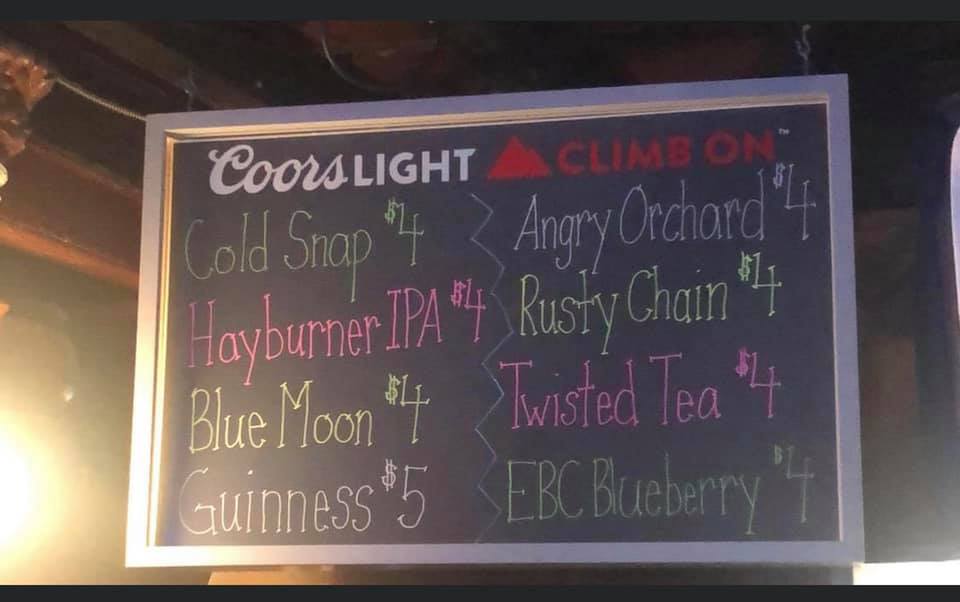 Coors LIGHT CLIMB ON™
Cold Snap $4
Hayburner IPA $4
Blue Moon $4
Guinness $5
Angry Orchard $4
Rusty Chain $4
Twisted Tea $4
EBC Blueberry $4